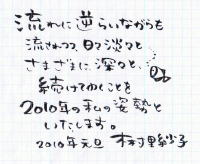 流れに逆らいながらも
流されつつ、日々淡々と
さまざまに、深々と、
続けてゆくことを
2010年の私の姿勢と
いたします。
2010年元旦 木村里紗子